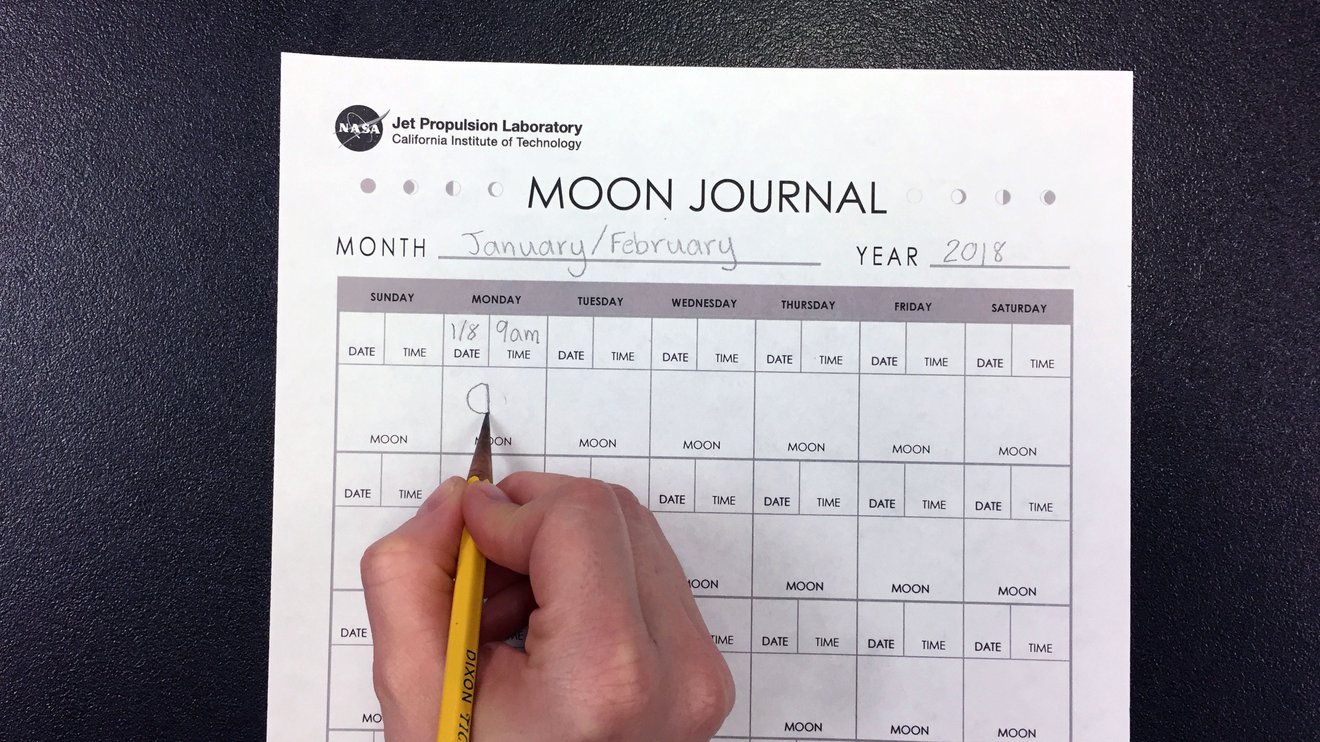 NASA
Jet Propulsion Laboratory
California Institute of Technology
MOON JOURNAL
MONTH January/February YEAR 2018
SUNDAY MONDAY TUESDAY WEDNESDAY THURSDAY FRIDAY SATURDAY
1/8 9am
DATE TIME DATE TIME DATE TIME DATE TIME DATE TIME DATE TIME DATE TIME
MOON MOON MOON MOON MOON MOON MOON
DATE TIME DATE TIME DATE TIME DATE TIME DATE TIME
MOON MOON MOON MOON
DATE TIME DATE TIME DATE TIME DATE TIME
MOON MOON MOON
DIXON TIC